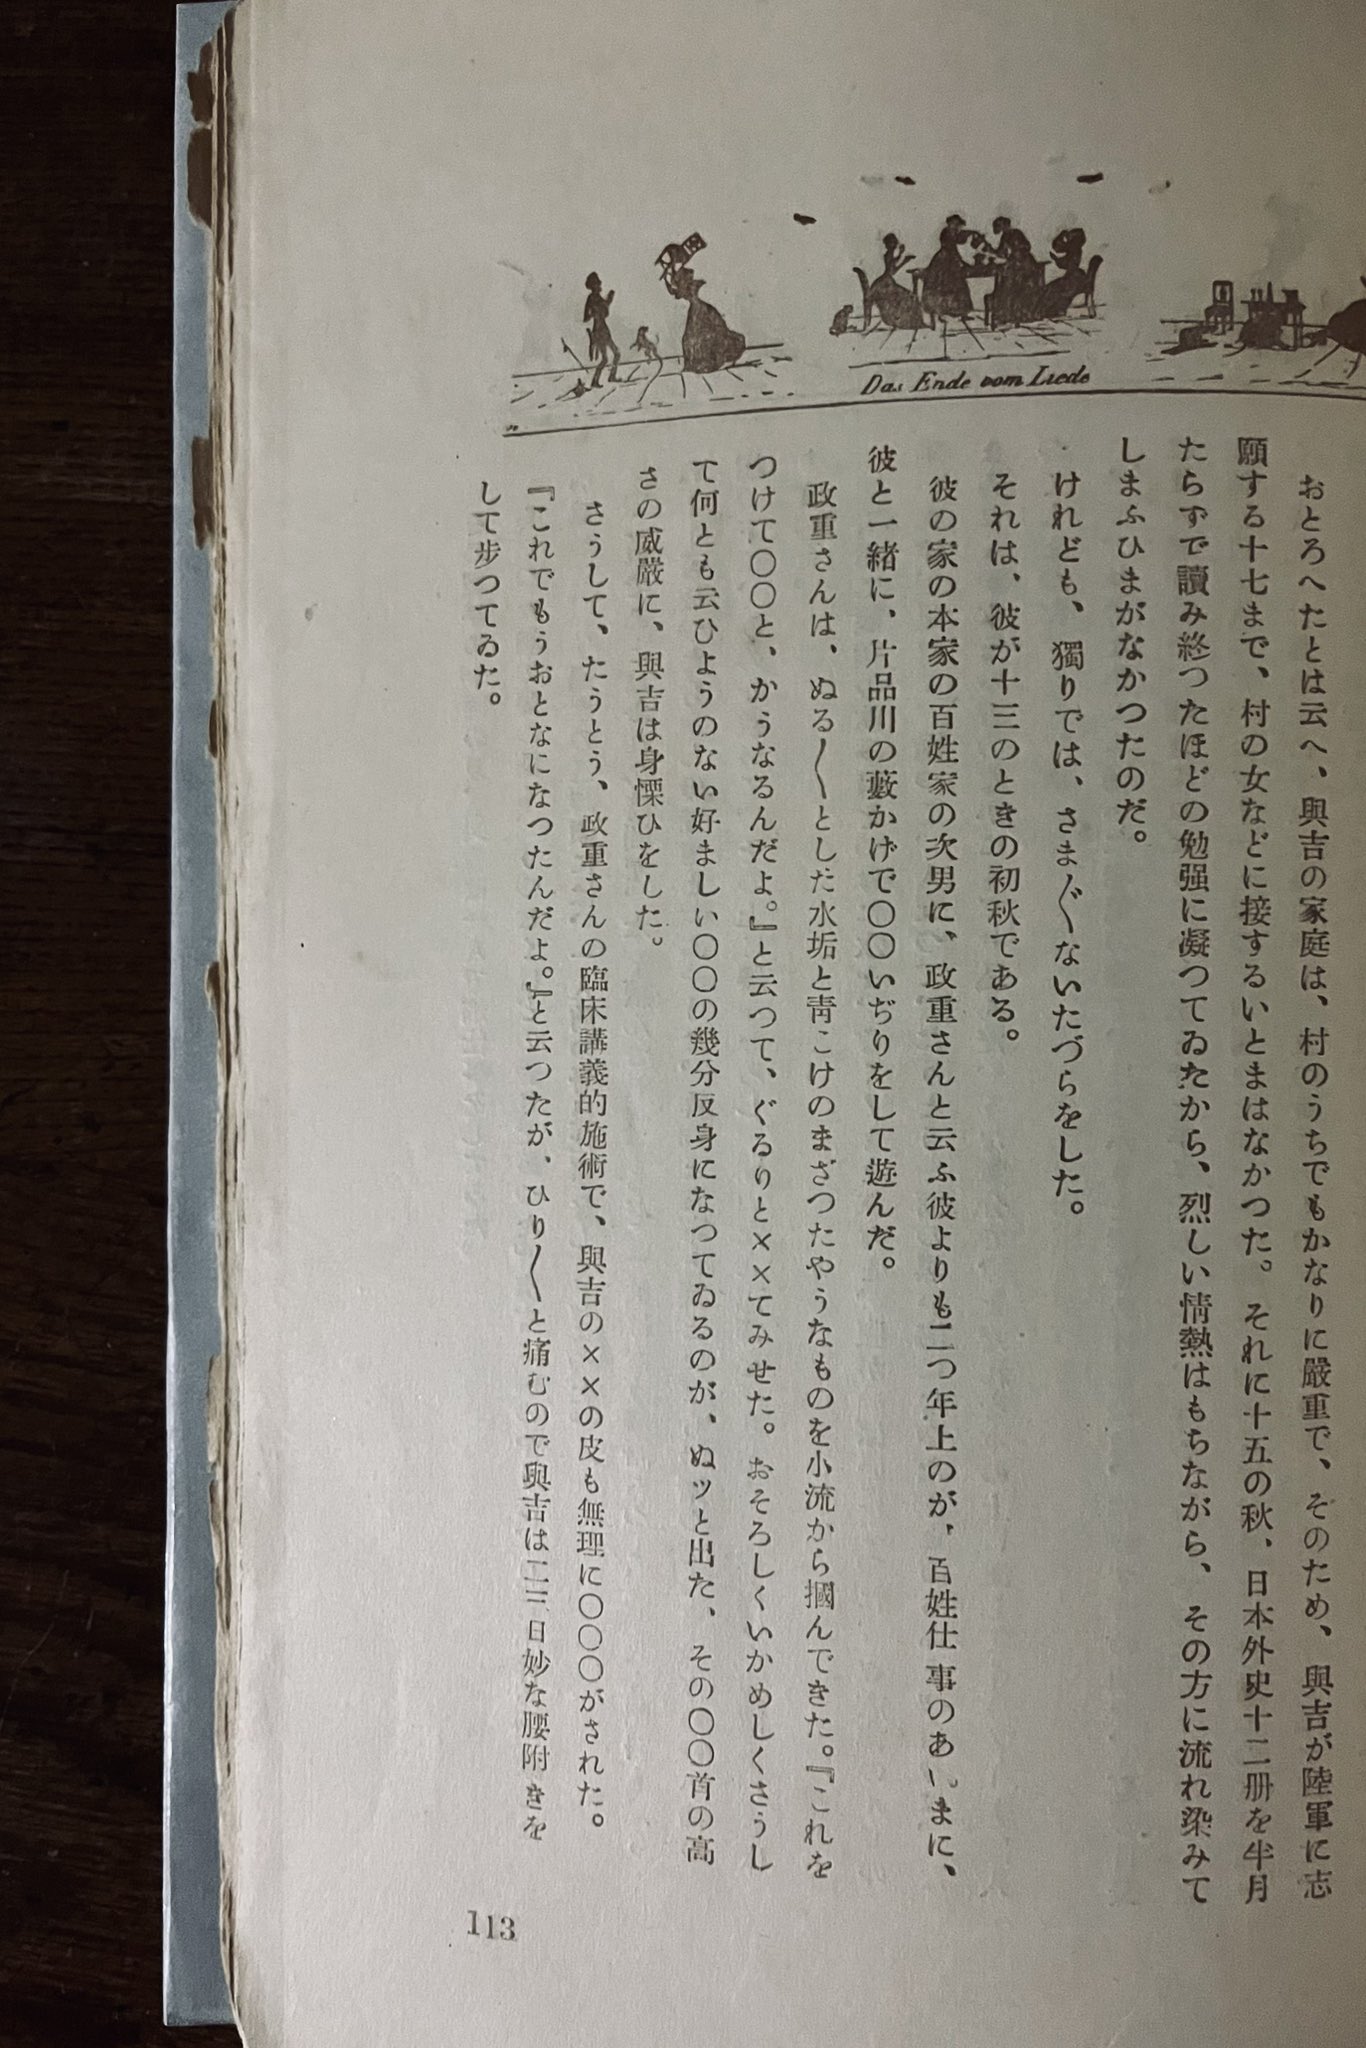 Das Ende vom Liede
おとろへたとは云へ、興吉の家庭は、村のうちでもかなりに嚴重で、そのため、興吉が陸軍に志
願する十七まで、村の女などに接するいとまはなかつた。それに十五の秋、日本外史十二册を半月
たらずで讀み終つたほどの勉强に凝つてゐたから、烈しい情熱はもちながら、その方に流れ染みて
しまふひまがなかつたのだ。
けれども、獨りでは、さま〴〵ないたづらをした。
それは、彼が十三のときの初秋である。
彼の家の本家の百姓家の次男に、政重さんと云ふ彼よりも二つ年上のが、百姓仕事のあいまに、
彼と一緒に、片品川の藪かげで〇〇いぢりをして遊んだ。
政重さんは、ぬる〱とした水垢と靑こけのまざつたやうなものを小流から摑んできた。『これを
つけて〇〇と、かうなるんだよ。』と云つて、ぐるりと××てみせた。おそろしくいかめしくさうし
て何とも云ひようのない好ましい〇〇の幾分反身になつてゐるのが、ぬッと出た、その〇〇首の高
さの威嚴に、興吉は身慄ひをした。
さうして、たうとう、政重さんの臨床講義的施術で、興吉の××の皮も無理に〇〇〇がされた。
『これでもうおとなになつたんだよ。』と云つたが、ひり〱と痛むので興吉は二三日妙な腰附きを
して步つてゐた。
113